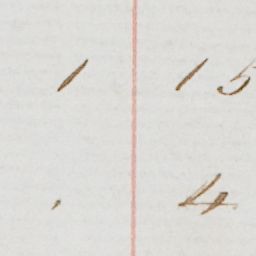 1 15
, 4